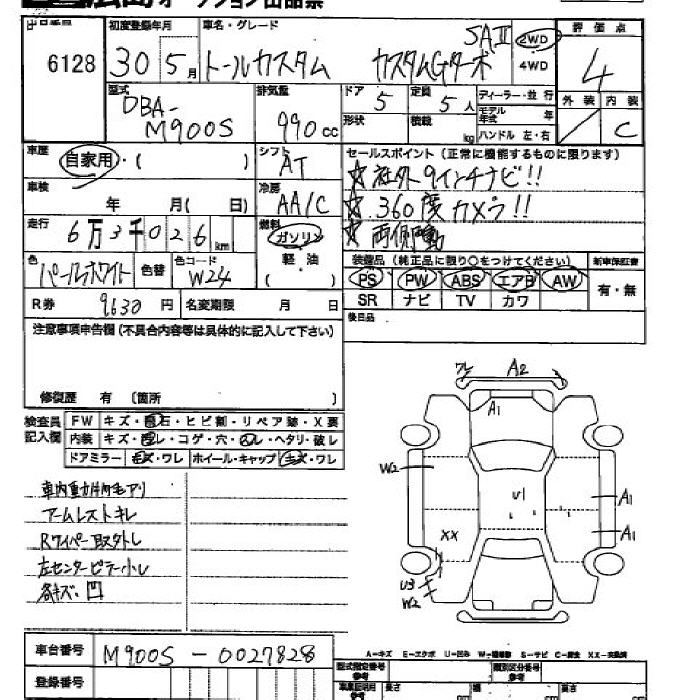 出品票
6128
初度登録年月
30 5月
車名・グレード
トールカスタム カスタムGターボ SAⅡ
2WD
4WD
評価点
4
外装 内装
C
型式
DBA-
M900S
排気量
990cc
ドア
5
定員
5人
形状
積載
kg
ディーラー・並行
モデル年式 年
ハンドル 左・右
車歴
自家用・( )
シフト
AT
車検
年 月( 日)
冷房
AA/C
走行
6万3千026km
燃料
ガソリン
軽・油
( )
セールスポイント(正常に機能するものに限ります)
☆社外9インチナビ!!
☆360度カメラ!!
☆両側電動
色
パールホワイト
色替
色コード
W24
装備品(純正品に限り○をつけてください)
新車保証書
PS PW ABS エアB AW
SR ナビ TV カワ
有・無
R券 9630円
名変期限 月 日
後日品
注意事項申告欄(不具合内容等は具体的に記入して下さい)
修復歴 有 〔箇所 〕
検査員
記入欄
FW キズ・飛石・ヒビ割・リペア跡・X要
内装 キズ・ ・コゲ・穴・ ・ヘタリ・破レ
ドアミラー キズ・ワレ ホイール・キャップ キズ・ワレ
アームレストキレ
Rワイパー取外し
左センターピラー小レ
各キズ・凹
ワレ A2
A1
W2
U1
A1
A1
XX
U3
W2
A-キズ E-エクボ U-凹み S-サビ C-腐食 XX-交換済
車台番号
M900S-0027828
登録番号
型式指定番号
参考
類別区分番号
参考
長さ
幅
高さ
cm
cm
cm